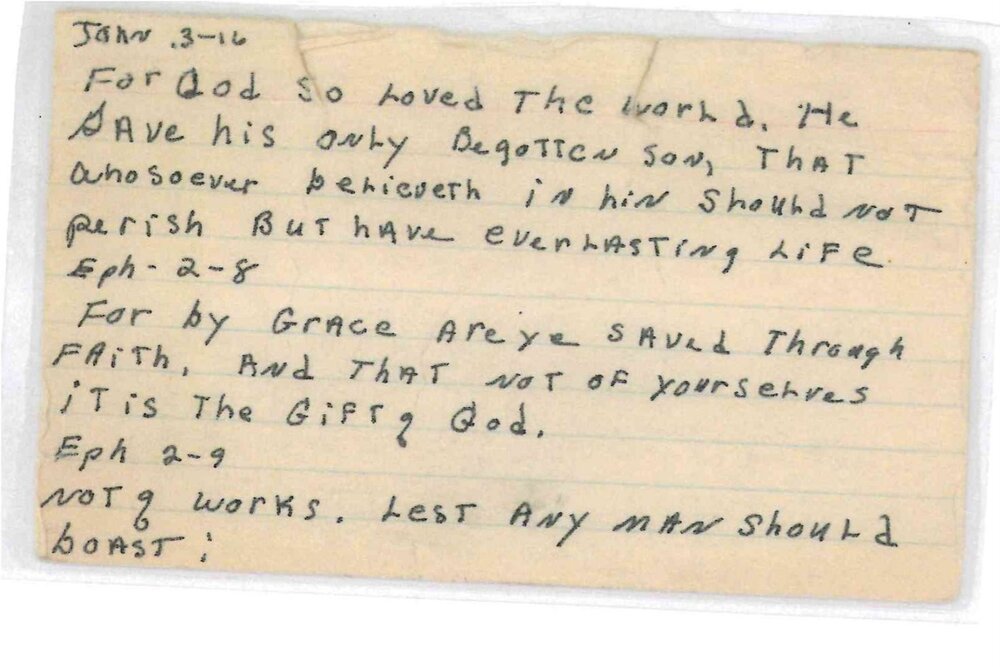 John .3-16
For God so Loved The world. He
GAve his only BegoTTen son, THAT
whosoever believeth in hin should noT
perish BuT hAve everLASTing LiFe
Eph - 2-8
For by GrAce Are ye sAved Through
FAiTh, And THAT noT oF yourselves
iT is The GiFT of God.
Eph 2-9
noT of works. LesT Any mAn should
boAST;